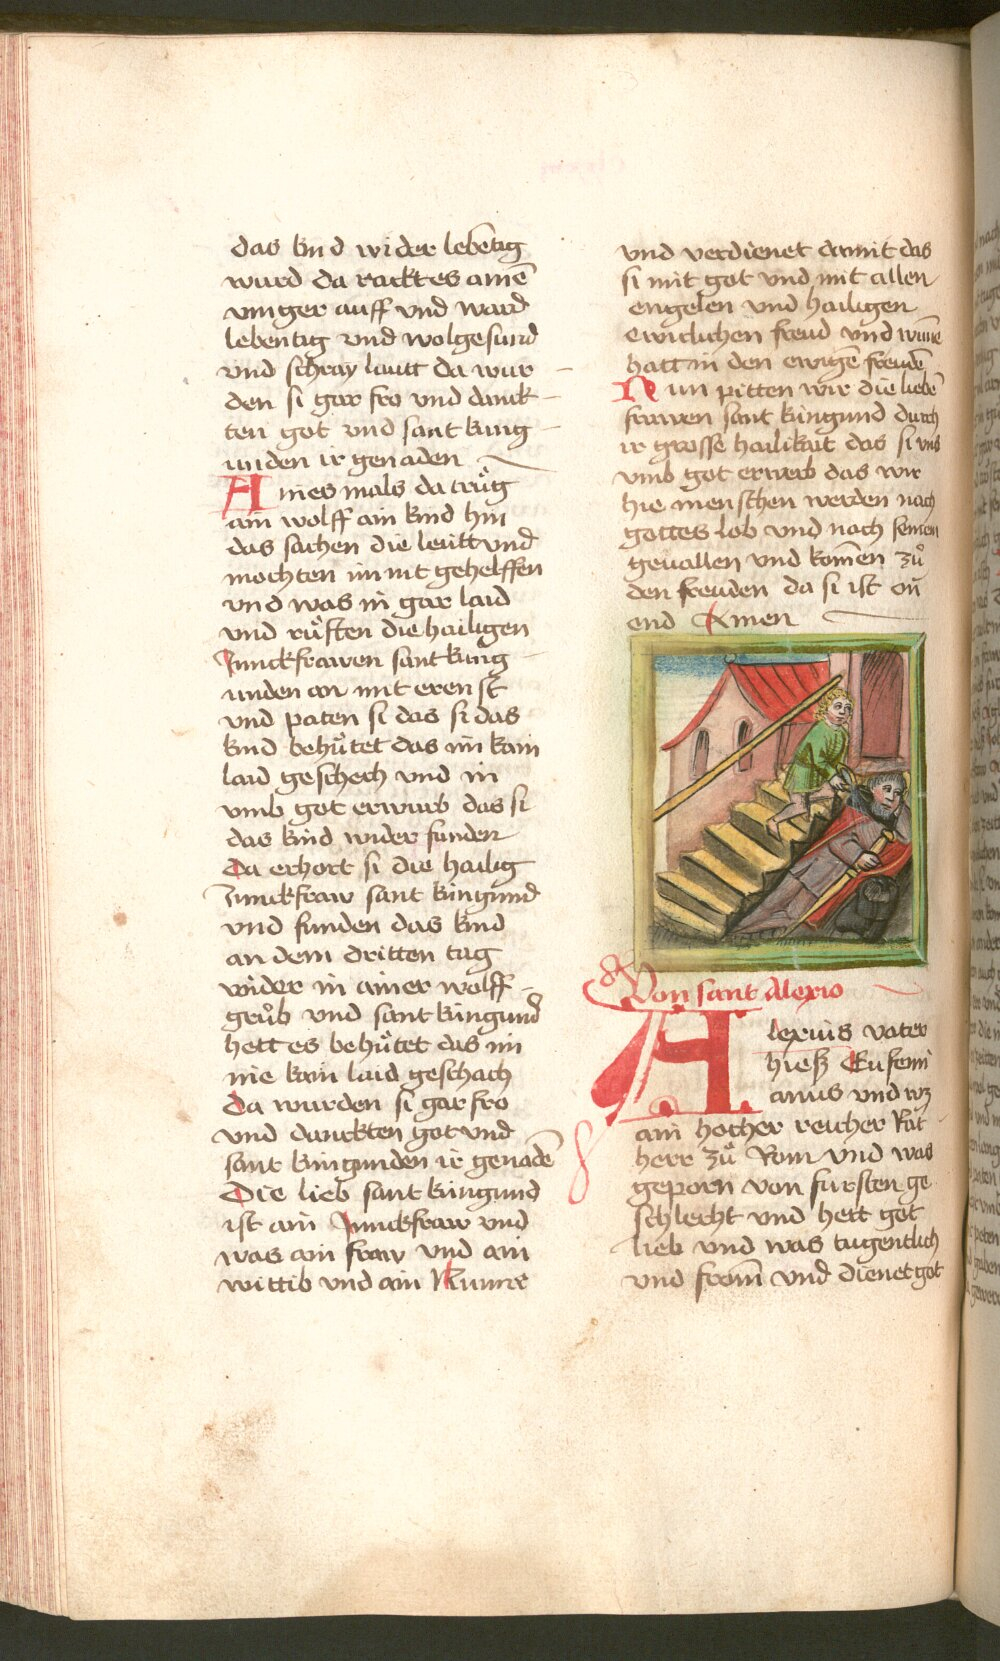 das kind wider lebētig
ward da racktes ainē
vinger auff vnd ward
lebentig vnd wolgesund
vnd schray lautt da wur
den si gar fro vnd danck
ten got vnd sant kung
unden ir genaden
Aines mals da trůg
ain wolff ain kind hin
das sachen die leütt vnd
mochten im nit gehelffen
vnd was in gar laid
vnd růfften die hailigen
Junckfrawen sant kung
unden an mit erenst
vnd paten si das si das
kind behůtet das im kain
laid geschech vnd in
vmb got erwurb das si
das kind wider funden
Da erhort si die hailig
Junckfraw sant kungund
vnd funden das kind
an dem dritten tag
wider in ainer wolff
grůb vnd sant kungund
hett es behůtet das im
nie kain laid geschach
Da wurden si gar fro
vnd danckten got vnd
sant kungunden ir genadē
Die lieb sant kungund
ist ain Junckfraw vnd
was ain fraw vnd ain
wittib vnd ain Nunne
vnd verdienet damit das
si mit got vnd mit allen
engelen vnd hailigen
ewiclichen freud vnd wūne
hatt in den ewigē freudē
Nun pitten wir die liebē
frawen sant kungund durch
ir grosse hailikait das si vns
vmb got erwerb das wir
hie menschen werden nach
gottes lob vnd nach seinem
geuallen vnd komen zů
den freuden da si ist on
end Amen
Von sant Alexio
Alexius vater
hiesz Eufemi
anus vnd wz
ain hocher reicher Rat
herr zů Rom vnd was
geporn von fürsten ge
schlecht vnd hett got
lieb vnd was tugentlich
vnd from vnd dienet got